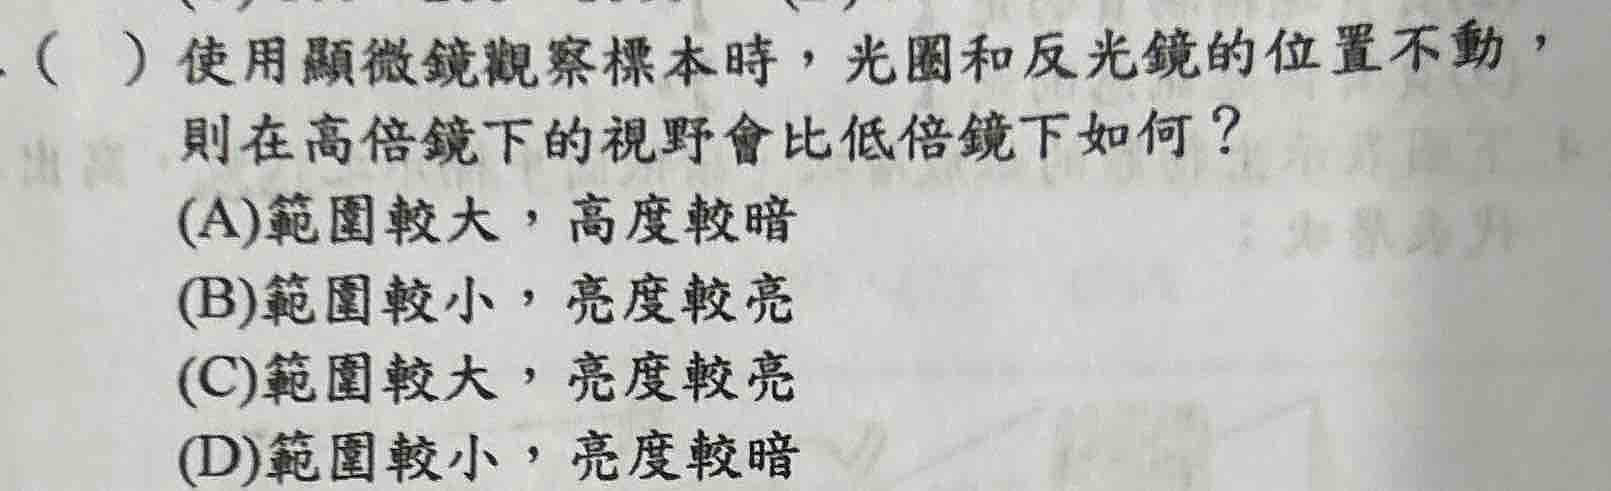 ( ) 使用顯微鏡觀察標本時，光圈和反光鏡的位置不動，
則在高倍鏡下的視野會比低倍鏡下如何？
(A)範圍較大，高度較暗
(B)範圍較小，亮度較亮
(C)範圍較大，亮度較亮
(D)範圍較小，亮度較暗